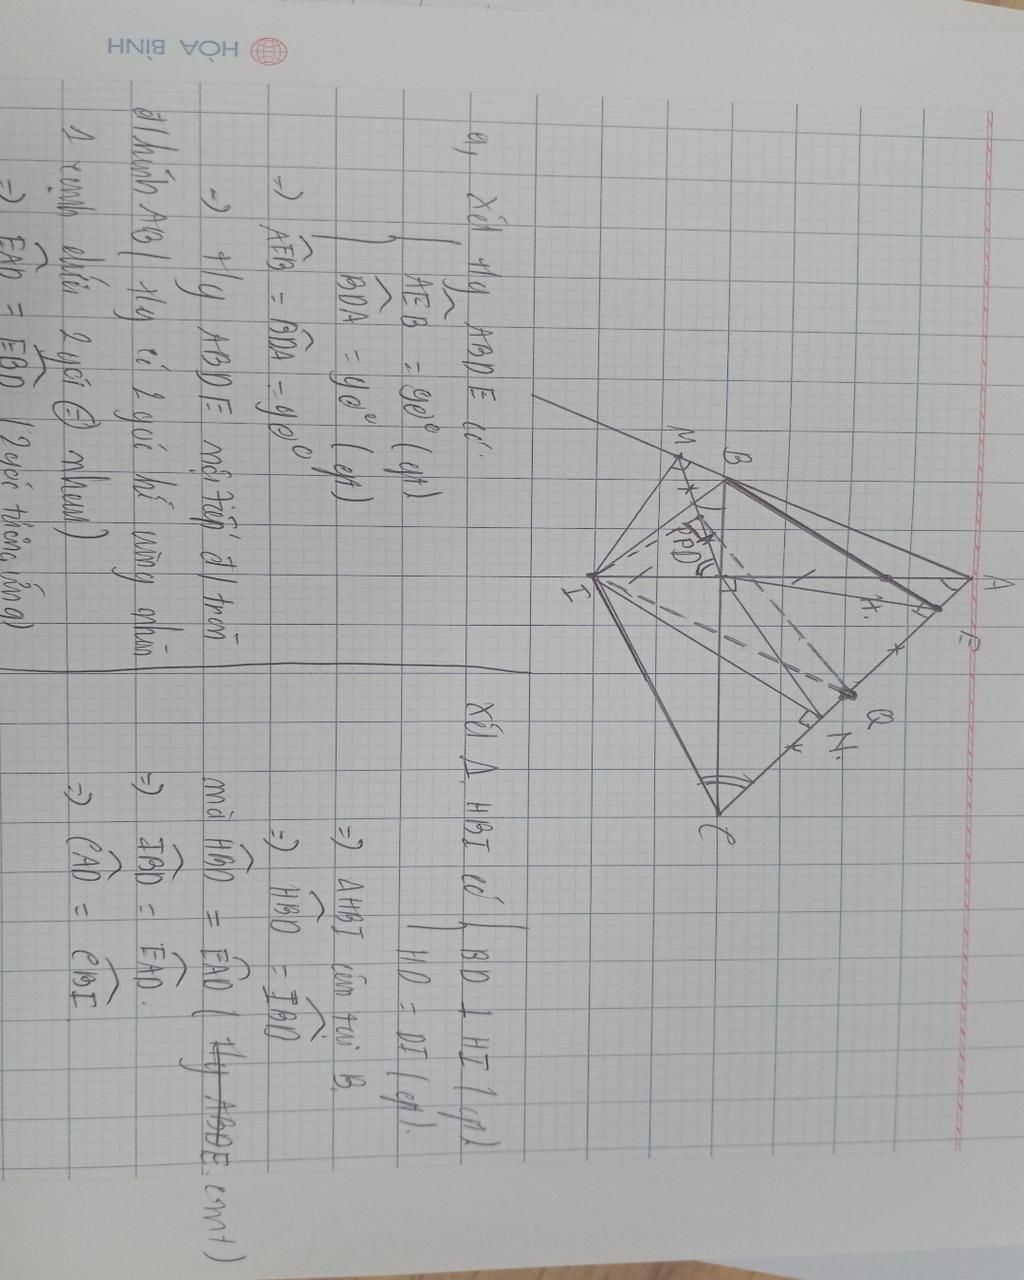 HÒA BÌNH
A
E
H.
Q
N.
B
M
P
D
C
I
a, Xét tg ABDE có:
AEB = 90° (gt)
BDA = 90° (gt)
=> AEB = BDA = 90°
=> tg ABDE nội tiếp đ/tròn
đ/kính AB ( tg có 2 góc kề cùng nhìn
1 cạnh dưới 2 góc = nhau)
=> EAD = EBD (2 góc tương ứng)
Xét Δ HBI có BD ⊥ HI (gt)
HD = DI (gt).
=> ΔHBI cân tại B
=> HBD = IBD
mà HBD = EAD ( tg ABDE cmt)
=> IBD = EAD.
=> CAD = CBI